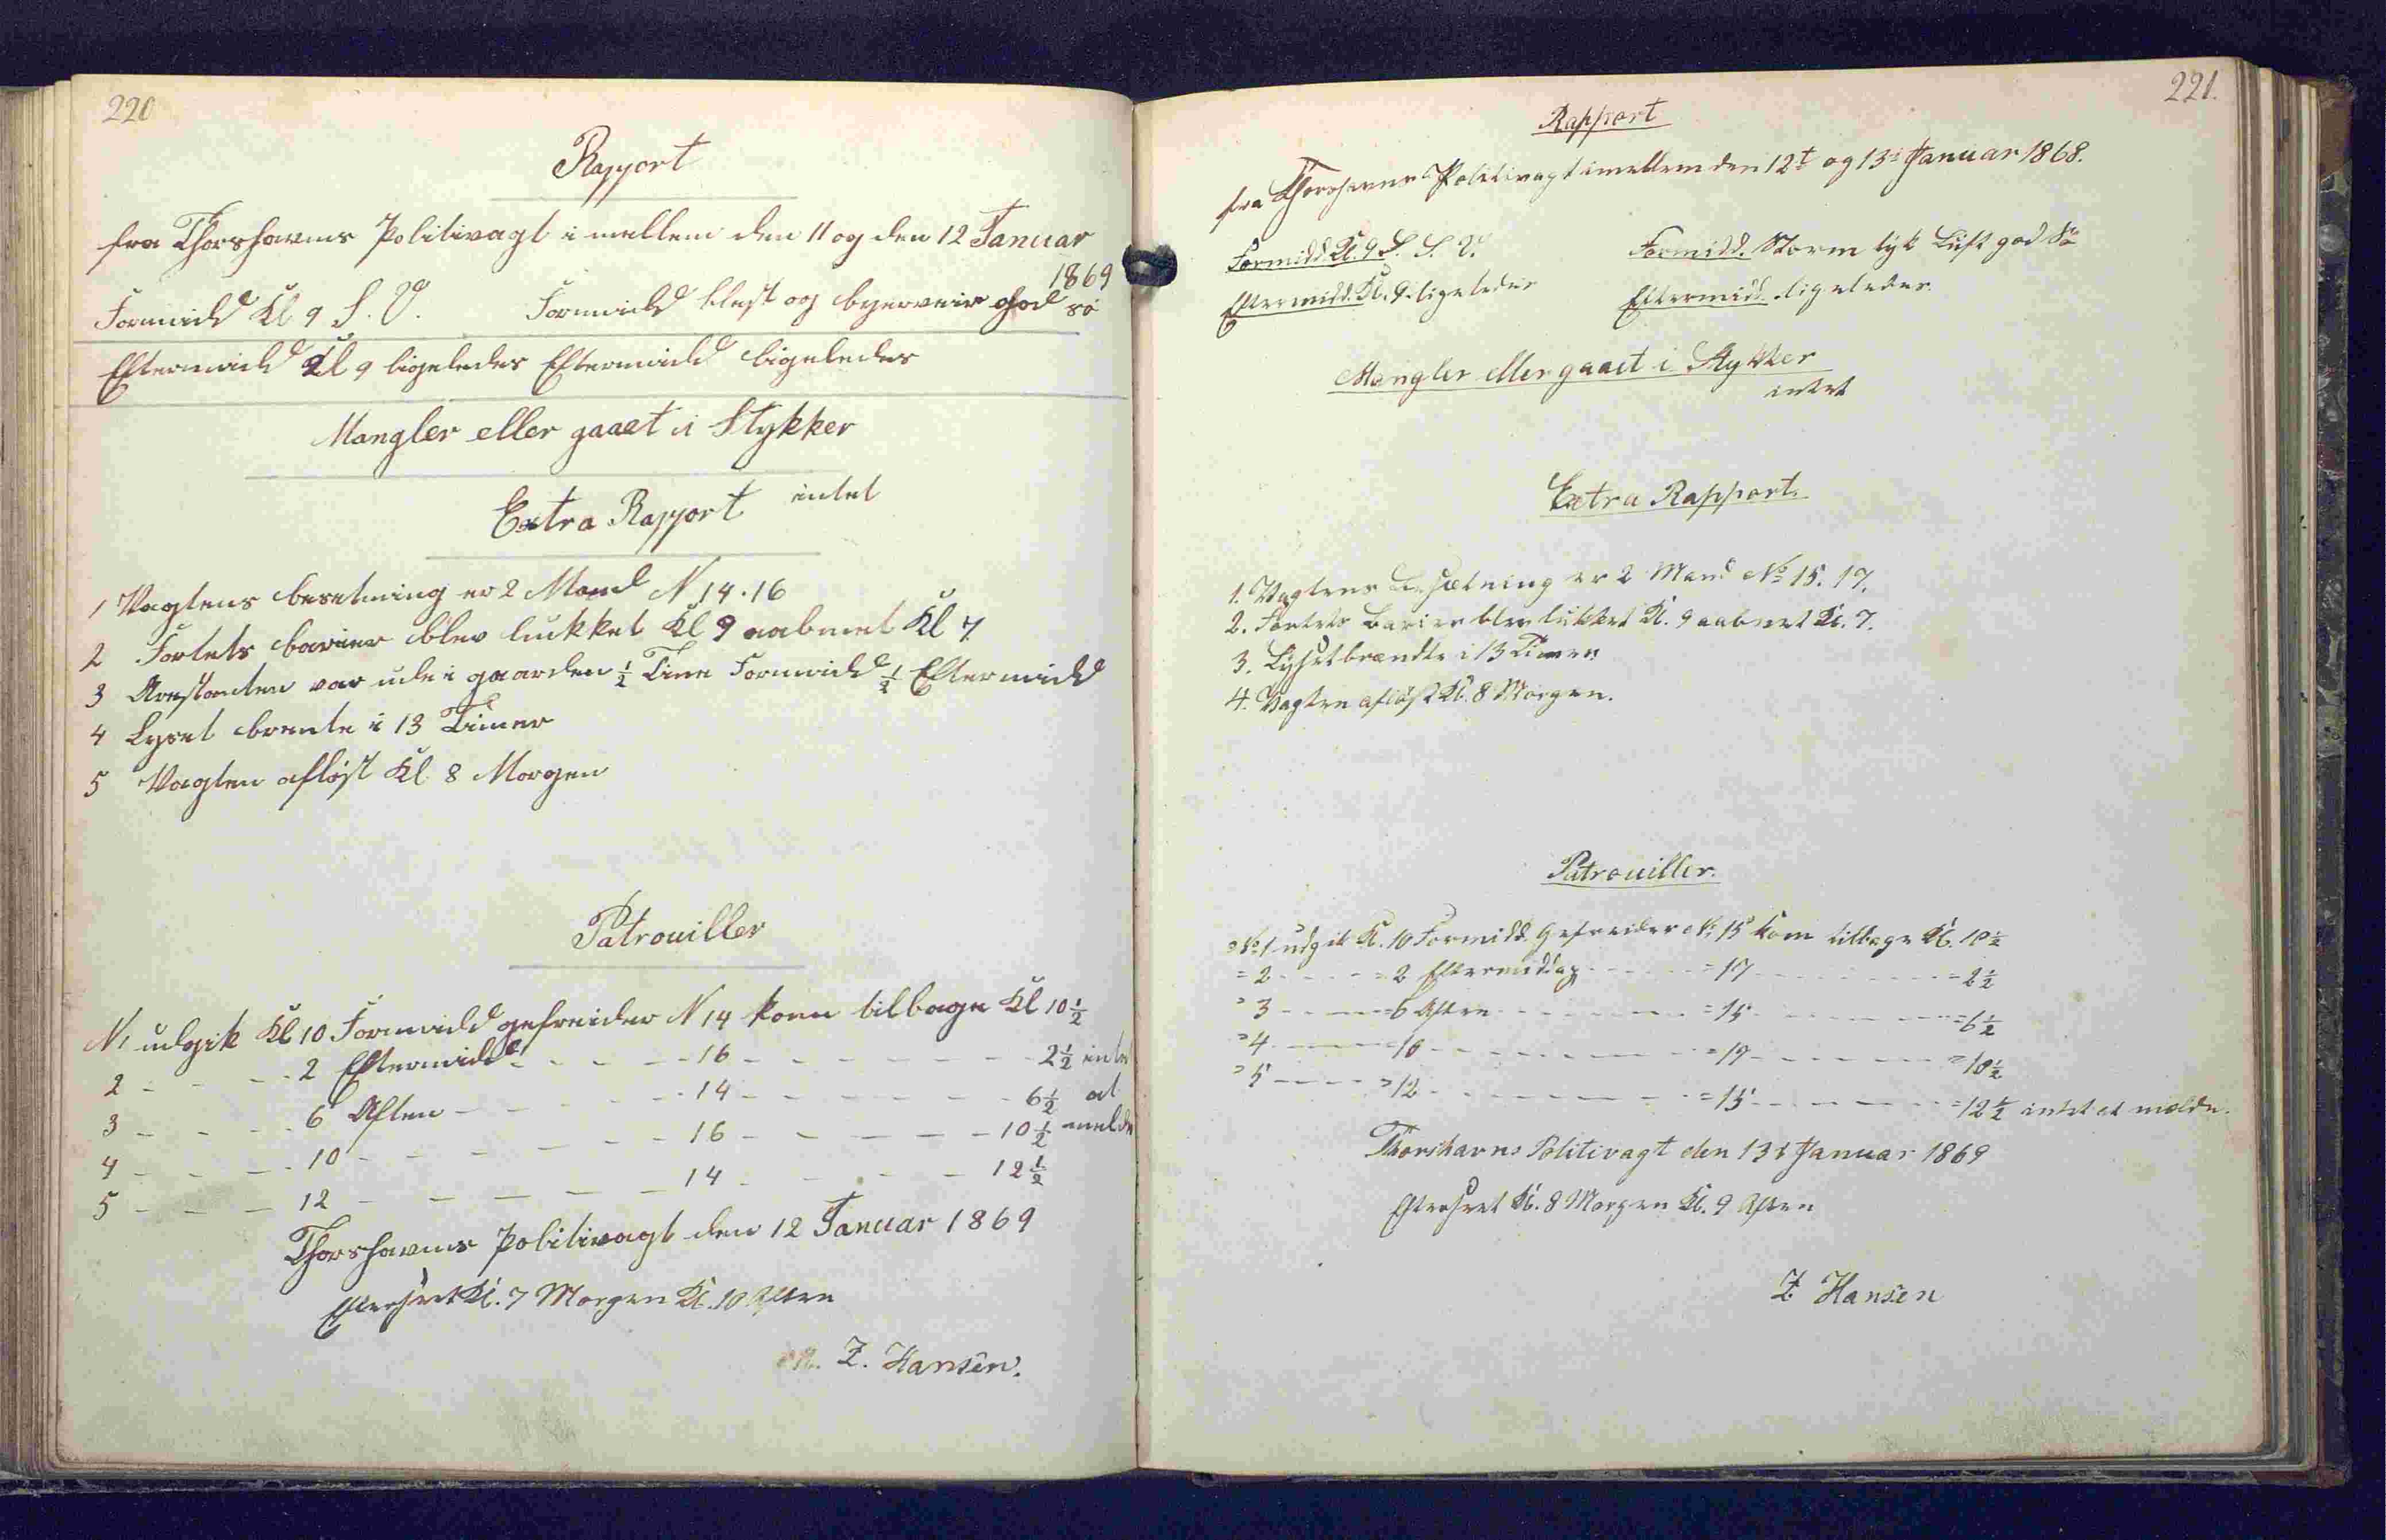 220
Rapport
fra Thorshavns Politivagt i mellem den 11 og den 12 Januar
1869
Formidd Kl 9 S. V. Formidd blest og byerveir god sö
Eftermidd Kl 9 ligeledes Eftermidd ligeledes
Mangler eller gaaet i Stykker
intet
Extra Rapport
1 Vagtens besetning er 2 Mand N 14. 16
2 Fortets barier blev lukket Kl 9 aabnet Kl 7
3 Arestanten var ude i gaarden ½ Time Formidd ½ Eftermidd
4 Lyset brente i 13 Timer
5 Vagten afløst Kl 8 Morgen
Patrouiller
N1 udgik Kl 10 Formidd gefreider N 14 kom tilbage Kl 10½
2 - - - - 2 Eftermidd - - - - 16 - - - - - - 2½ intet
3 - - - - 6 Aften - - - - - 14 - - - - - - 6½ at
4 - - - - 10 - - - - - - 16 - - - - - 10½ melde
5 - - - 12 - - - - - 14 - - - - 12½
Thorshavns Politivagt den 12 Januar 1869
Efterseet Kl. 7 Morgen Kl. 10 Aften
Z. Hansen.
221.
Rapport
fra Thorshavns Politivagt imellem den 12t og 13d Januar 1868.
Formidd. Kl. 9 S. S. V. Formidd. Storm tyk Luft god Sö
Eftermidd. Kl. 9. ligeledes Eftermidd. ligeledes.
Mangler eller gaaet i Stykker
intet
Extra Rapport.
1. Vagtens Besætning er 2 Mand No 15. 17.
2. Fortets Barier blev lukket Kl. 9 aabnet Kl. 7.
3. Lyset brændte i 13 Timer.
4. Vagten afløst Kl. 8 Morgen.
Patrouiller.
No 1 udgik Kl. 10 Formidd. Gefreider No 15 kom tilbage Kl. 10½
= 2 - - - - = 2 Eftermiddag - - - - = 17 - - - - - - = 2½
= 3 - - - = 6 Aften - - - - - - = 15 - - - - - = 6½
= 4 - - - 10 - - - - - - = 17 - - - - - = 10½
= 5 - - - - = 12 - - - - - - = 15 - - - - - = 12½ intet at melde.
Thorshavns Politivagt den 13d Januar 1869
Efterseet Kl. 8 Morgen Kl. 9 Aften
Z Hansen